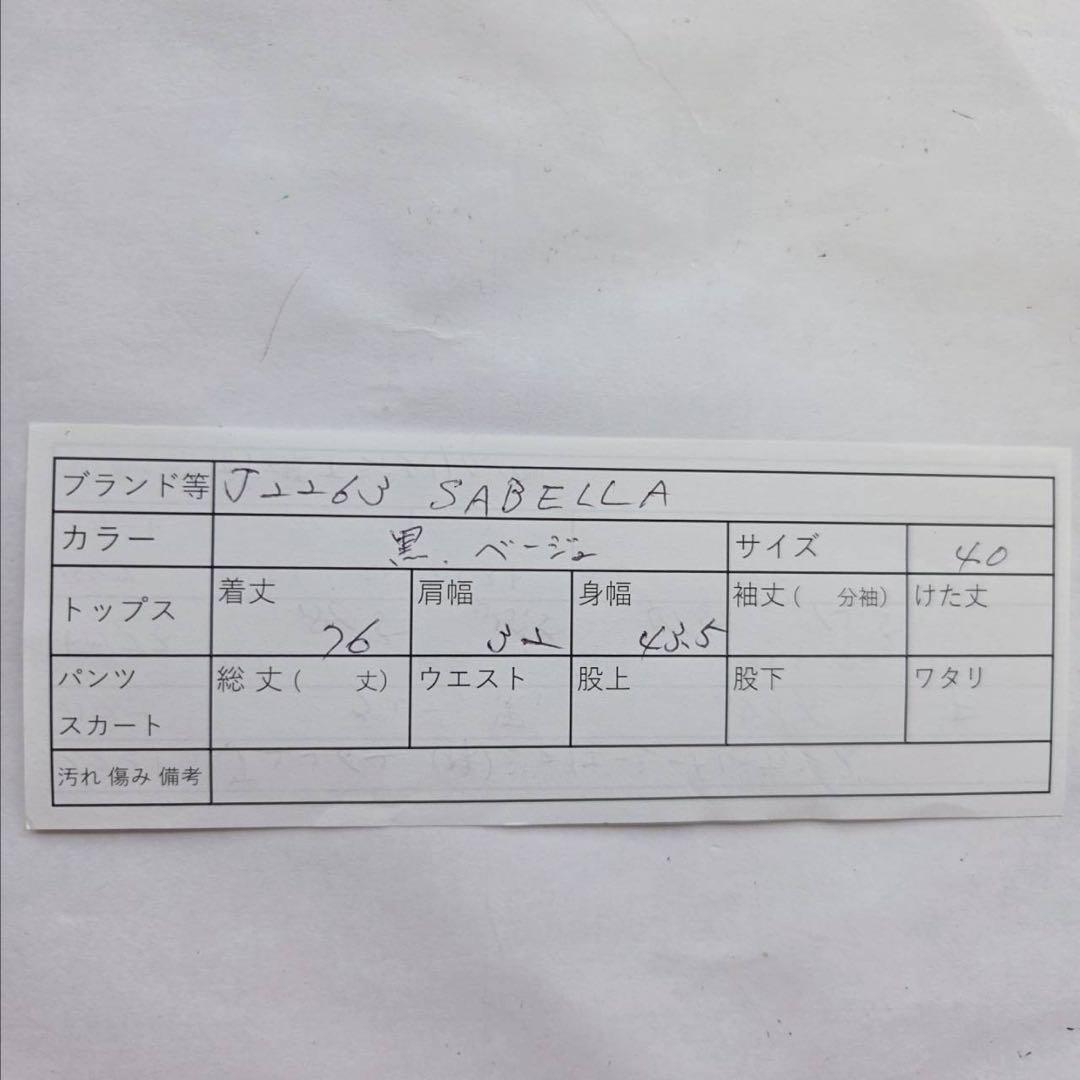 ブランド等 J2263 SABELLA
カラー 黒.ベージュ サイズ 40
トップス 着丈 76 肩幅 32 身幅 43.5 袖丈( 分袖) けた丈
パンツ スカート 総丈( 丈) ウエスト 股上 股下 ワタリ
汚れ 傷み 備考